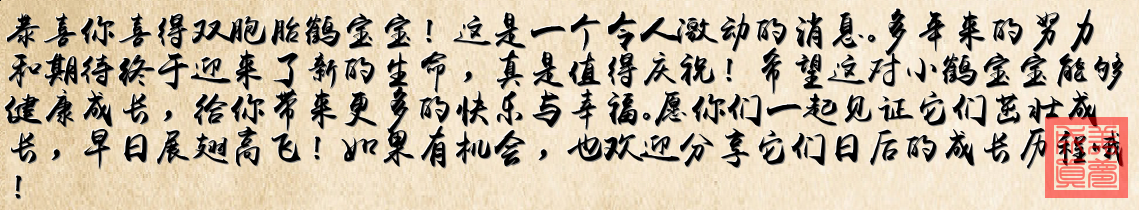 恭喜你喜得双胞胎鹤宝宝！这是一个令人激动的消息。多年来的努力
和期待终于迎来了新的生命，真是值得庆祝！希望这对小鹤宝宝能够
健康成长，给你带来更多的快乐与幸福。愿你们一起见证它们茁壮成
长，早日展翅高飞！如果有机会，也欢迎分享它们日后的成长历程哦
！